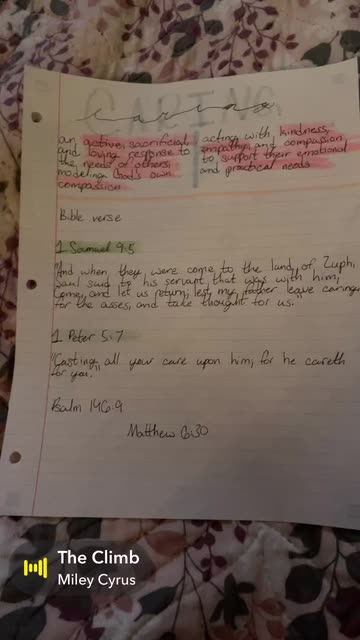 CARING
caring
an active, sacrificial,
and loving response to
the needs of others,
modeling God's own
compassion
acting with kindness,
empathy, and compassion
to support their emotional
and practical needs
Bible verse
1 Samuel 9:5
"And when they were come to the land of Zuph,
Saul said to his servant that was with him,
Come, and let us return; lest my father leave caring
for the asses, and take thought for us."
1 Peter 5:7
"Casting all your care upon him; for he careth
for you."
Psalm 146:9
Matthew 6:30
The Climb
Miley Cyrus